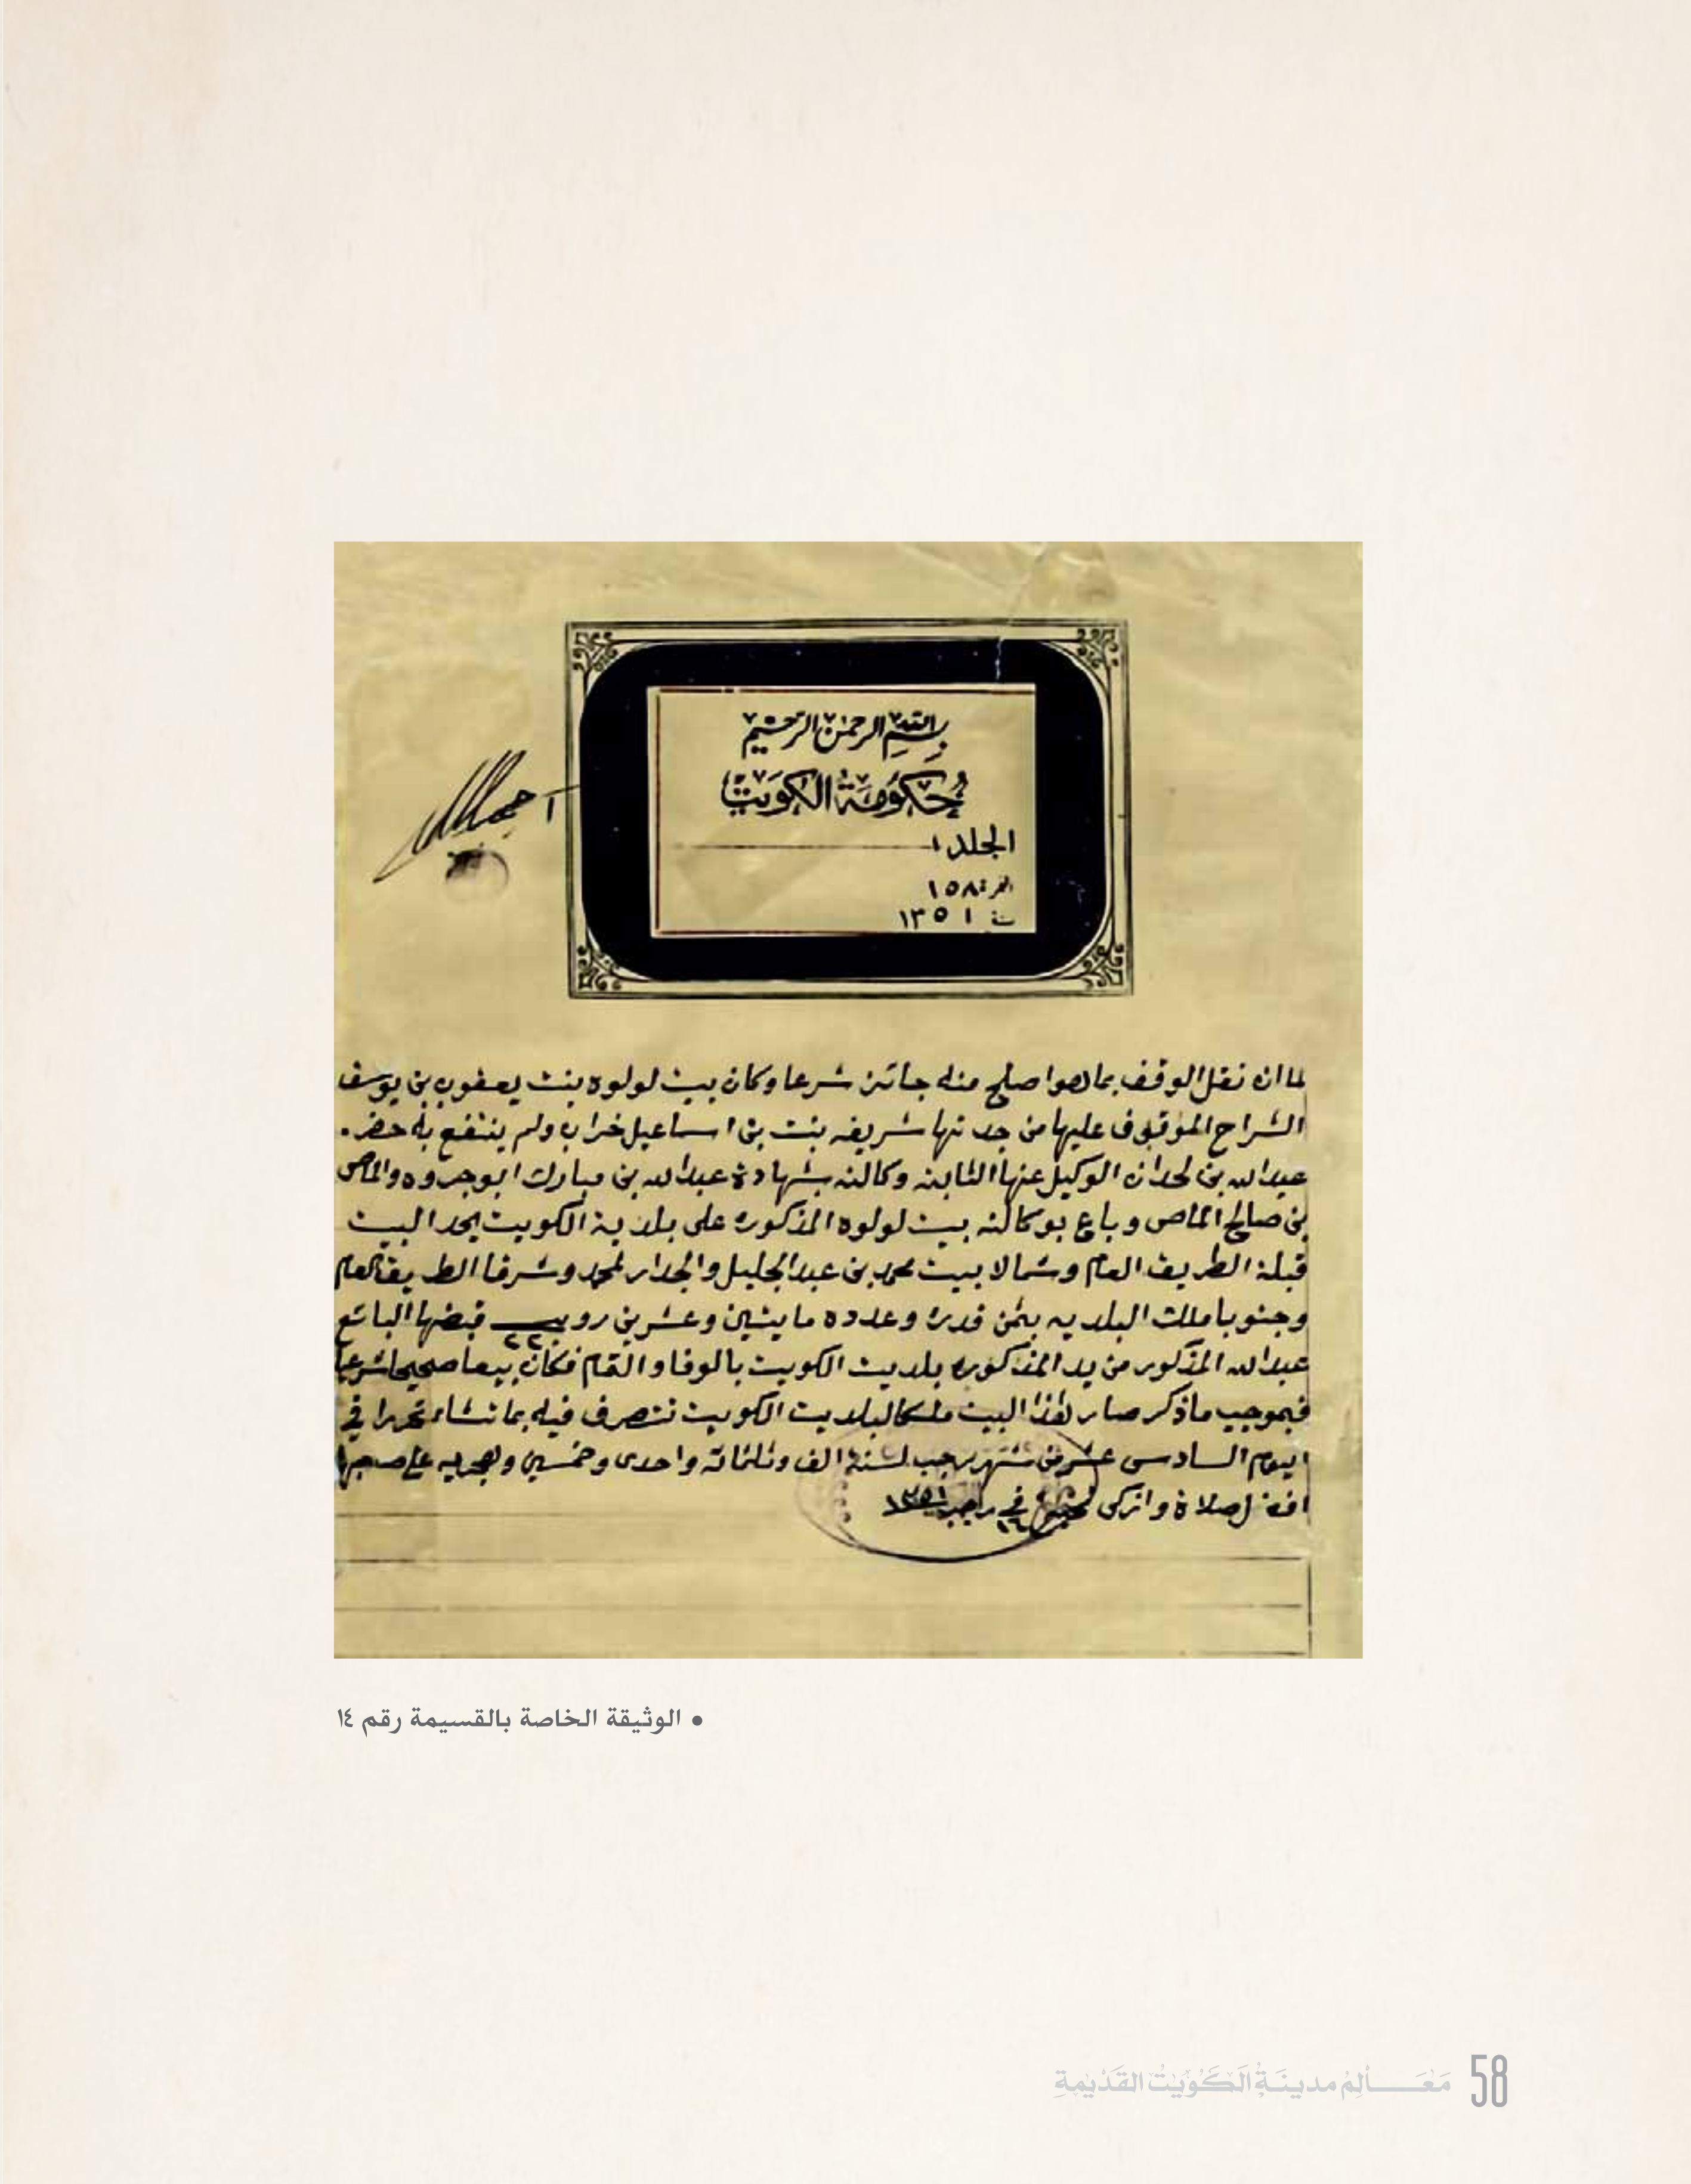 بسم الله الرحمن الرحيم
حكومة الكويت
المجلد ١
النمرة ١٥٨
سنة ١٣٥١
لما ان نقل الوقف بما هو اصلح منه جائز شرعا وكان بيت لولوه بنت يعقوب بن يوسف
الشراح الموقوف عليها من جدتها شريفه بنت بن اسماعيل خراب ولم ينتفع به حضر
عبدالله بن لحدان الوكيل عنها الثابته وكالته بشهادة عبدالله بن مبارك ابوجروه والماص
بن صالح الماص وباع بوكالته بيت لولوه المذكوره على بلدية الكويت يحد البيت
قبلة الطريق العام وشمالا بيت محمد بن عبدالجليل والجدار لمحمد وشرقا الطريق العام
وجنوبا ملك البلديه بثمن قدره وعدده مايتين وعشرين روبيه ٢٢٠ قبضها البائع
عبدالله المذكور من يد المذكوره بلديت الكويت بالوفا والتمام فكان بيعا صحيحا شرعيا
فبموجب ماذكر صار هذا البيت ملكا لبلديت الكويت تتصرف فيه بما تشاء تحررا في
اليوم السادس عشر من شهر رجب لسنة الف وثلثمائة واحدى وخمسين وهجريه على صاحبها
افضل صلاة وازكى تحية في ١٦ رجب ١٣٥١
• الوثيقة الخاصة بالقسيمة رقم ١٤
58 معالم مدينة الكويت القديمة